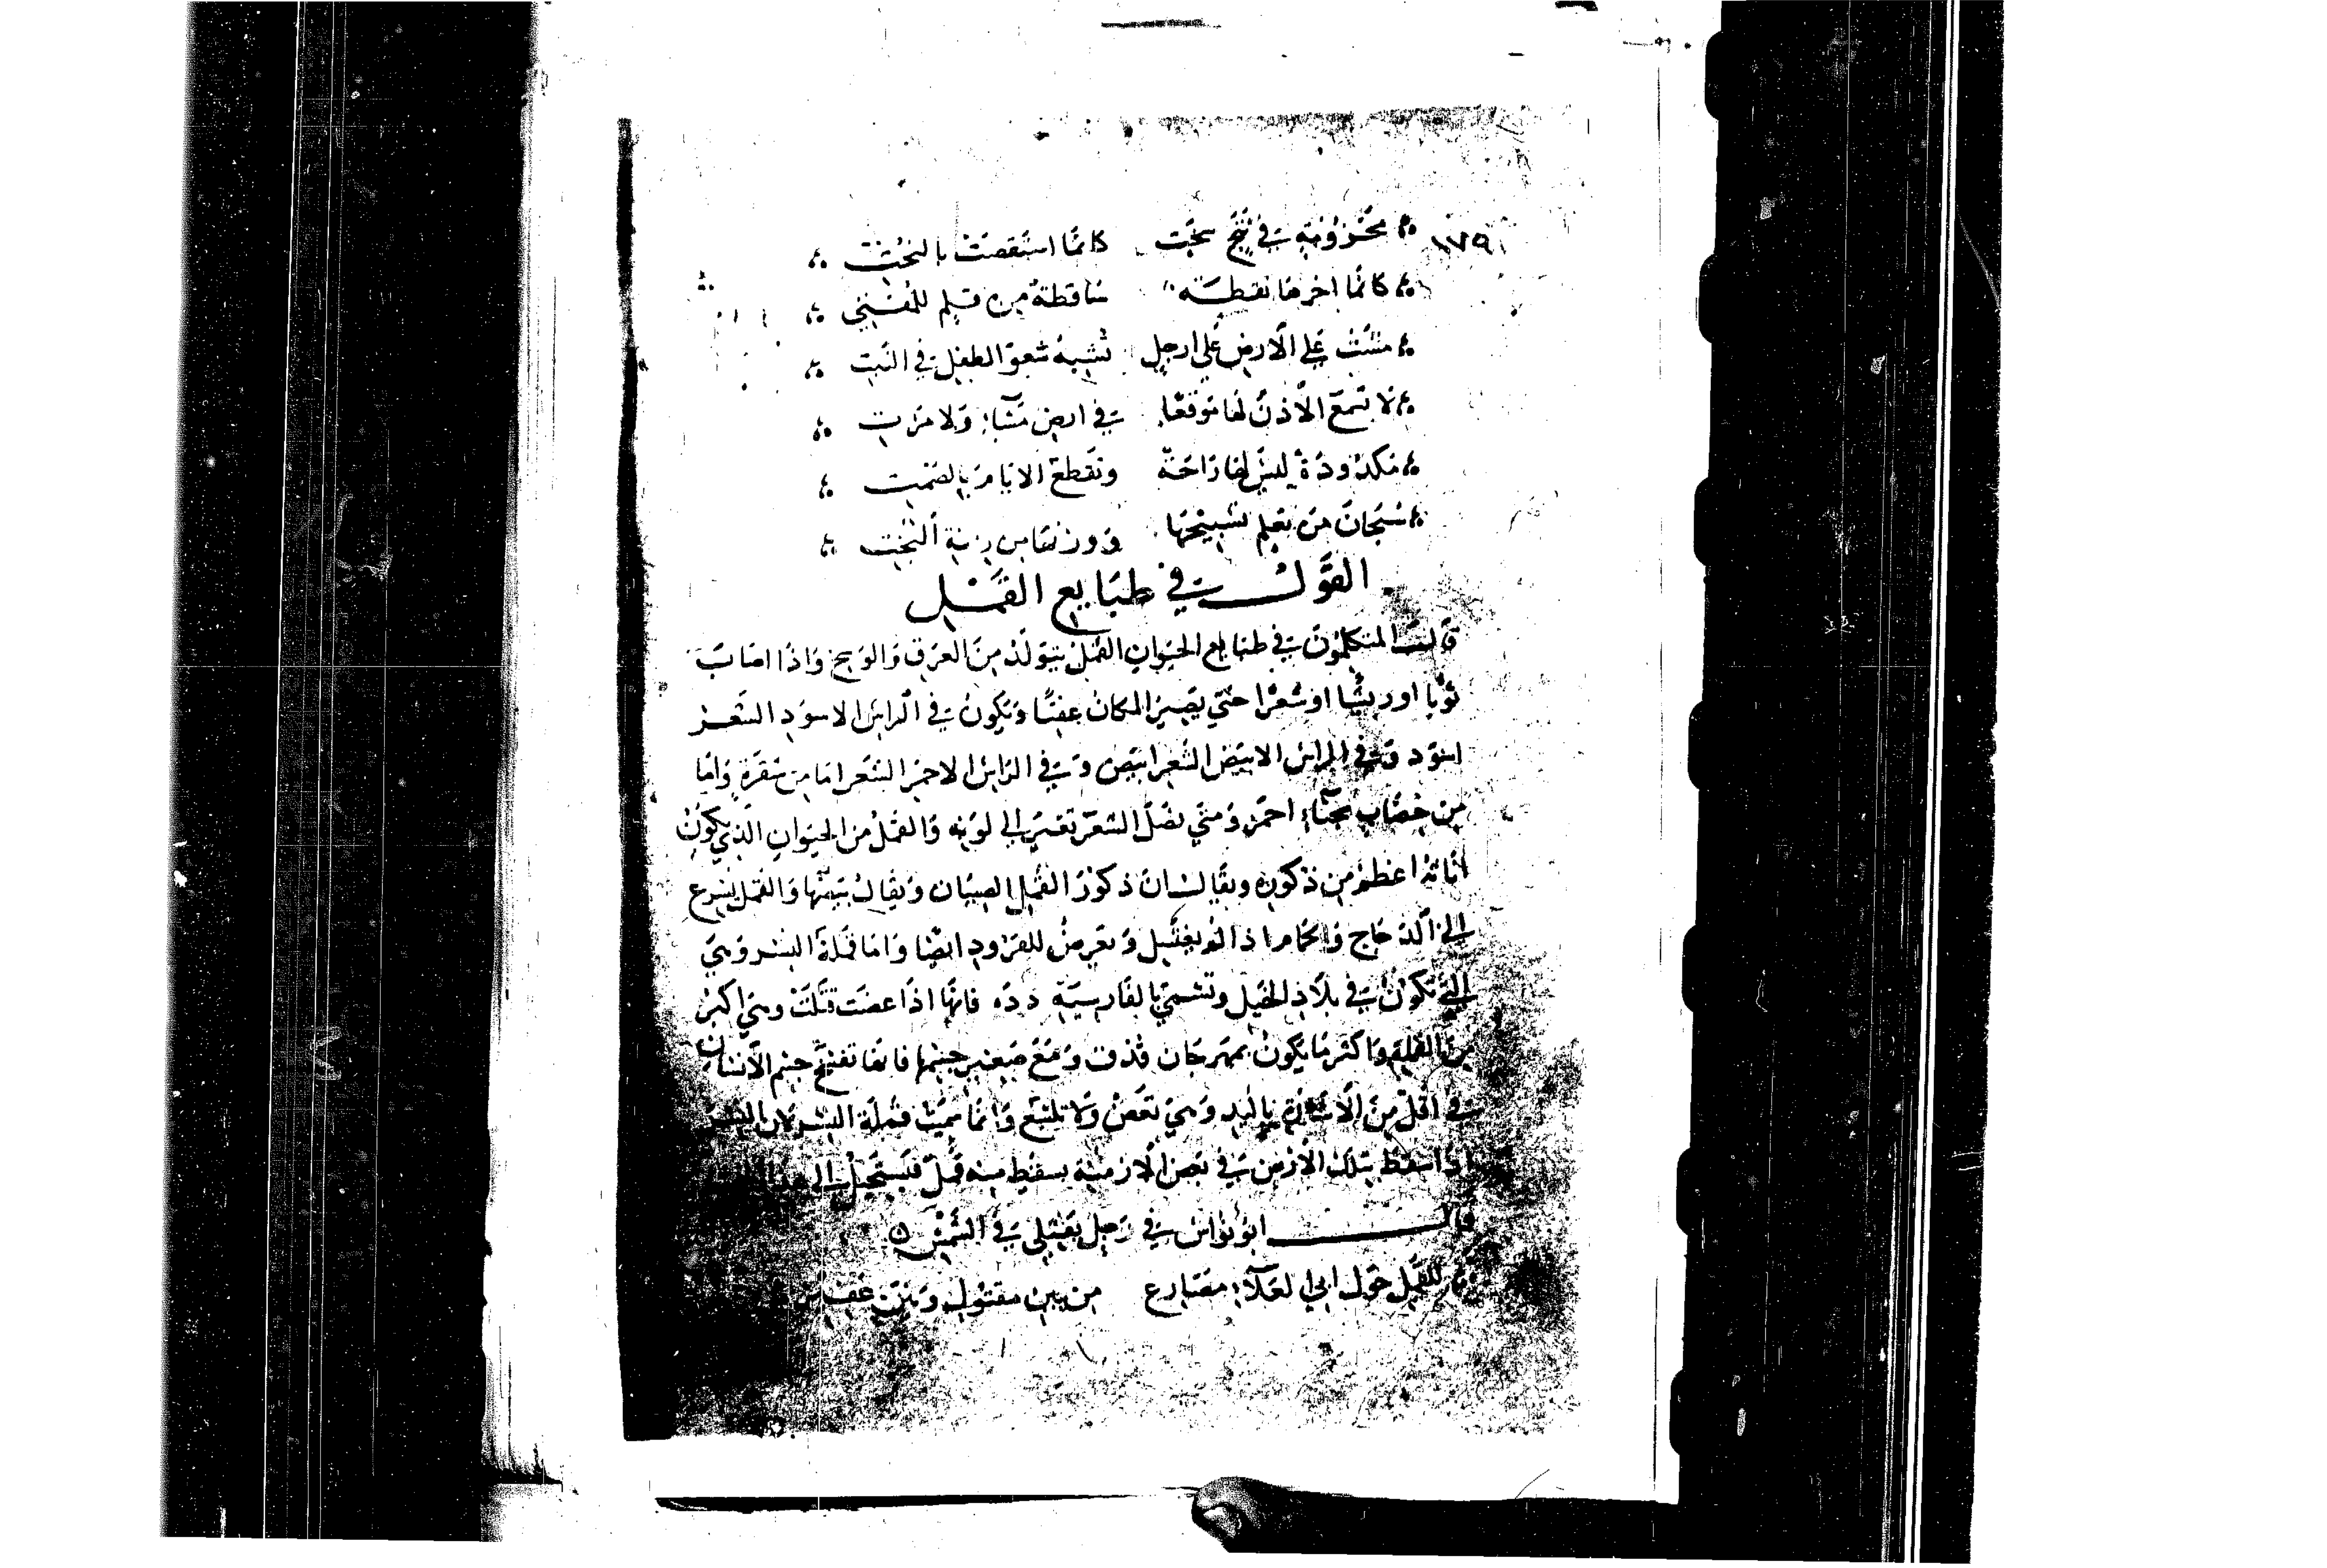 ١٧٥ محزونة في نتج سحت كانما استقصت بالنحت
كانما اخرها نقطة ساقطة من قلم المفتي
مشت على الارض على ارجل تشبه شعر الطفل في النبت
لا تسمع الاذن لها موقعا في ارض مشاء ولا مرت
مكدودة ليس لها راحة وتقطع الايام بالصمت
سبحان من يعلم تسبيحها ووزنها من زنة البخت
القول في طبايع القمل
قالت المتكلمون في طبايع الحيوان القمل يتولد من العرق والوسخ واذا اصابت
ثوبا او ريشا او شعرا حتي يصير المكان عفنا ويكون في الراس الاسود الشعر
اسود وفي الراس الابيض الشعر ابيض وفي الراس الاحمر الشعر اما من شقرة واما
من خضاب بحناء احمر ومتي نصل الشعر تغير الي لونه والقمل من الحيوان الذي يكون
اناثه اعظم من ذكوره ويقال ان ذكور القمل الصيبان ويقال بيضها والقمل يسرع
الي الدجاج والحمام اذا لم يغتسل ويعرض للقرود ايضا واما قملة النسر وهي
التي تكون في بلاد الجبل وتسمي بالفارسية دده فانها اذا عضت قتلت وهي اكبر
من القملة واكثر ما يكون بمهرجان قذق ومع صغير جسمها فانها تفسخ جسم الانسان
في اقل من الاشارة باليد وهي تعض ولا تلسع وانما سميت قملة النسر لان النسر
اذا سقط بتلك الارض في بعض الازمنة يسقط منه قمل فيستحيل الي هذا
قال ابو نواس في رجل يفتلي في الشمس
للقمل حول ابي العلاء مصارع من بين مقتول وبين عقير